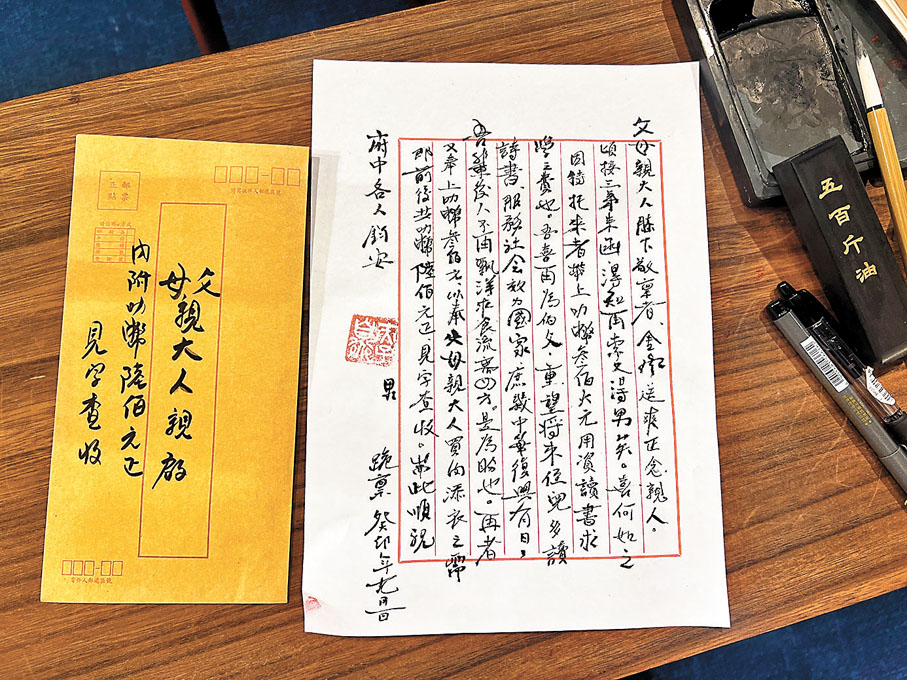 父母親大人膝下敬稟者、金風送爽正念親人。
頃接三弟來函得知再索文得男矣。喜何如之
因特托來者帶上叻幣叁佰大元用資讀書求
學之費也。吾喜再為伯父、重望將來侄兒多讀
詩書、服務社會效力國家庶幾中華復興有日。
吾輩後人不再飄洋求食流寓四方。是為盼也。再者
又奉上叻幣叁佰元、以奉父母親大人買肉添衣之需
即前後共叻幣陸佰元正、見字查收。崇此順祝
府中各人鈞安
男
跪稟 癸卯年九月
父
母親大人親啟
內附叻幣陸佰元正
見字查收
正郵
貼票
寄件人郵遞區號
五百斤油